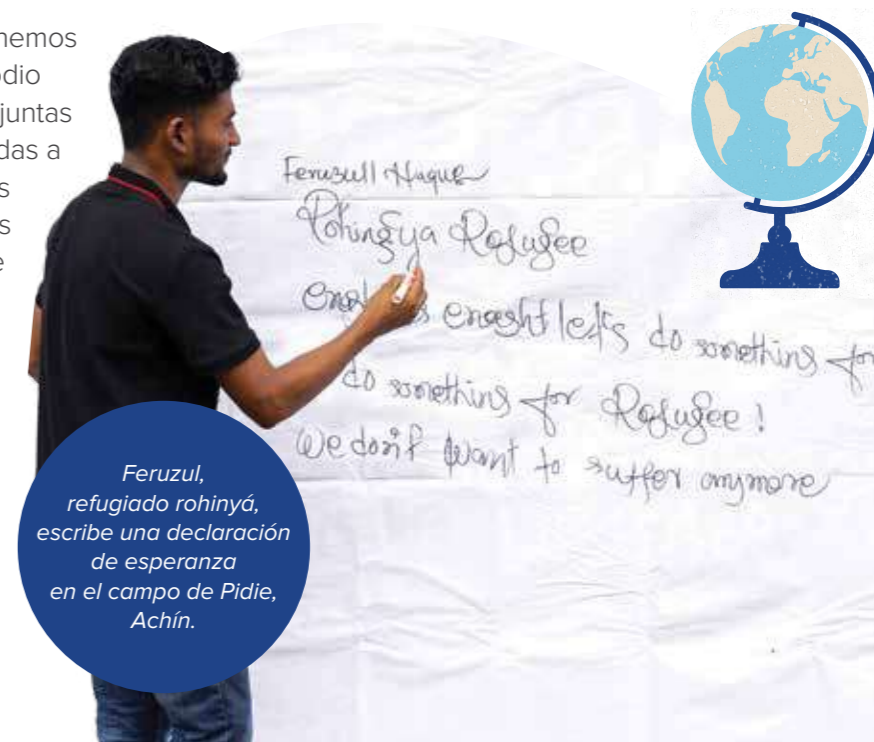 nemos
odio
juntas
das a
s
s
e
Feruzull Haque
Rohingya Refugee
is enaght let's do something for
do something for Refugee!
We don't want to suffer anymore
Feruzul,
refugiado rohinyá,
escribe una declaración
de esperanza
en el campo de Pidie,
Achín.